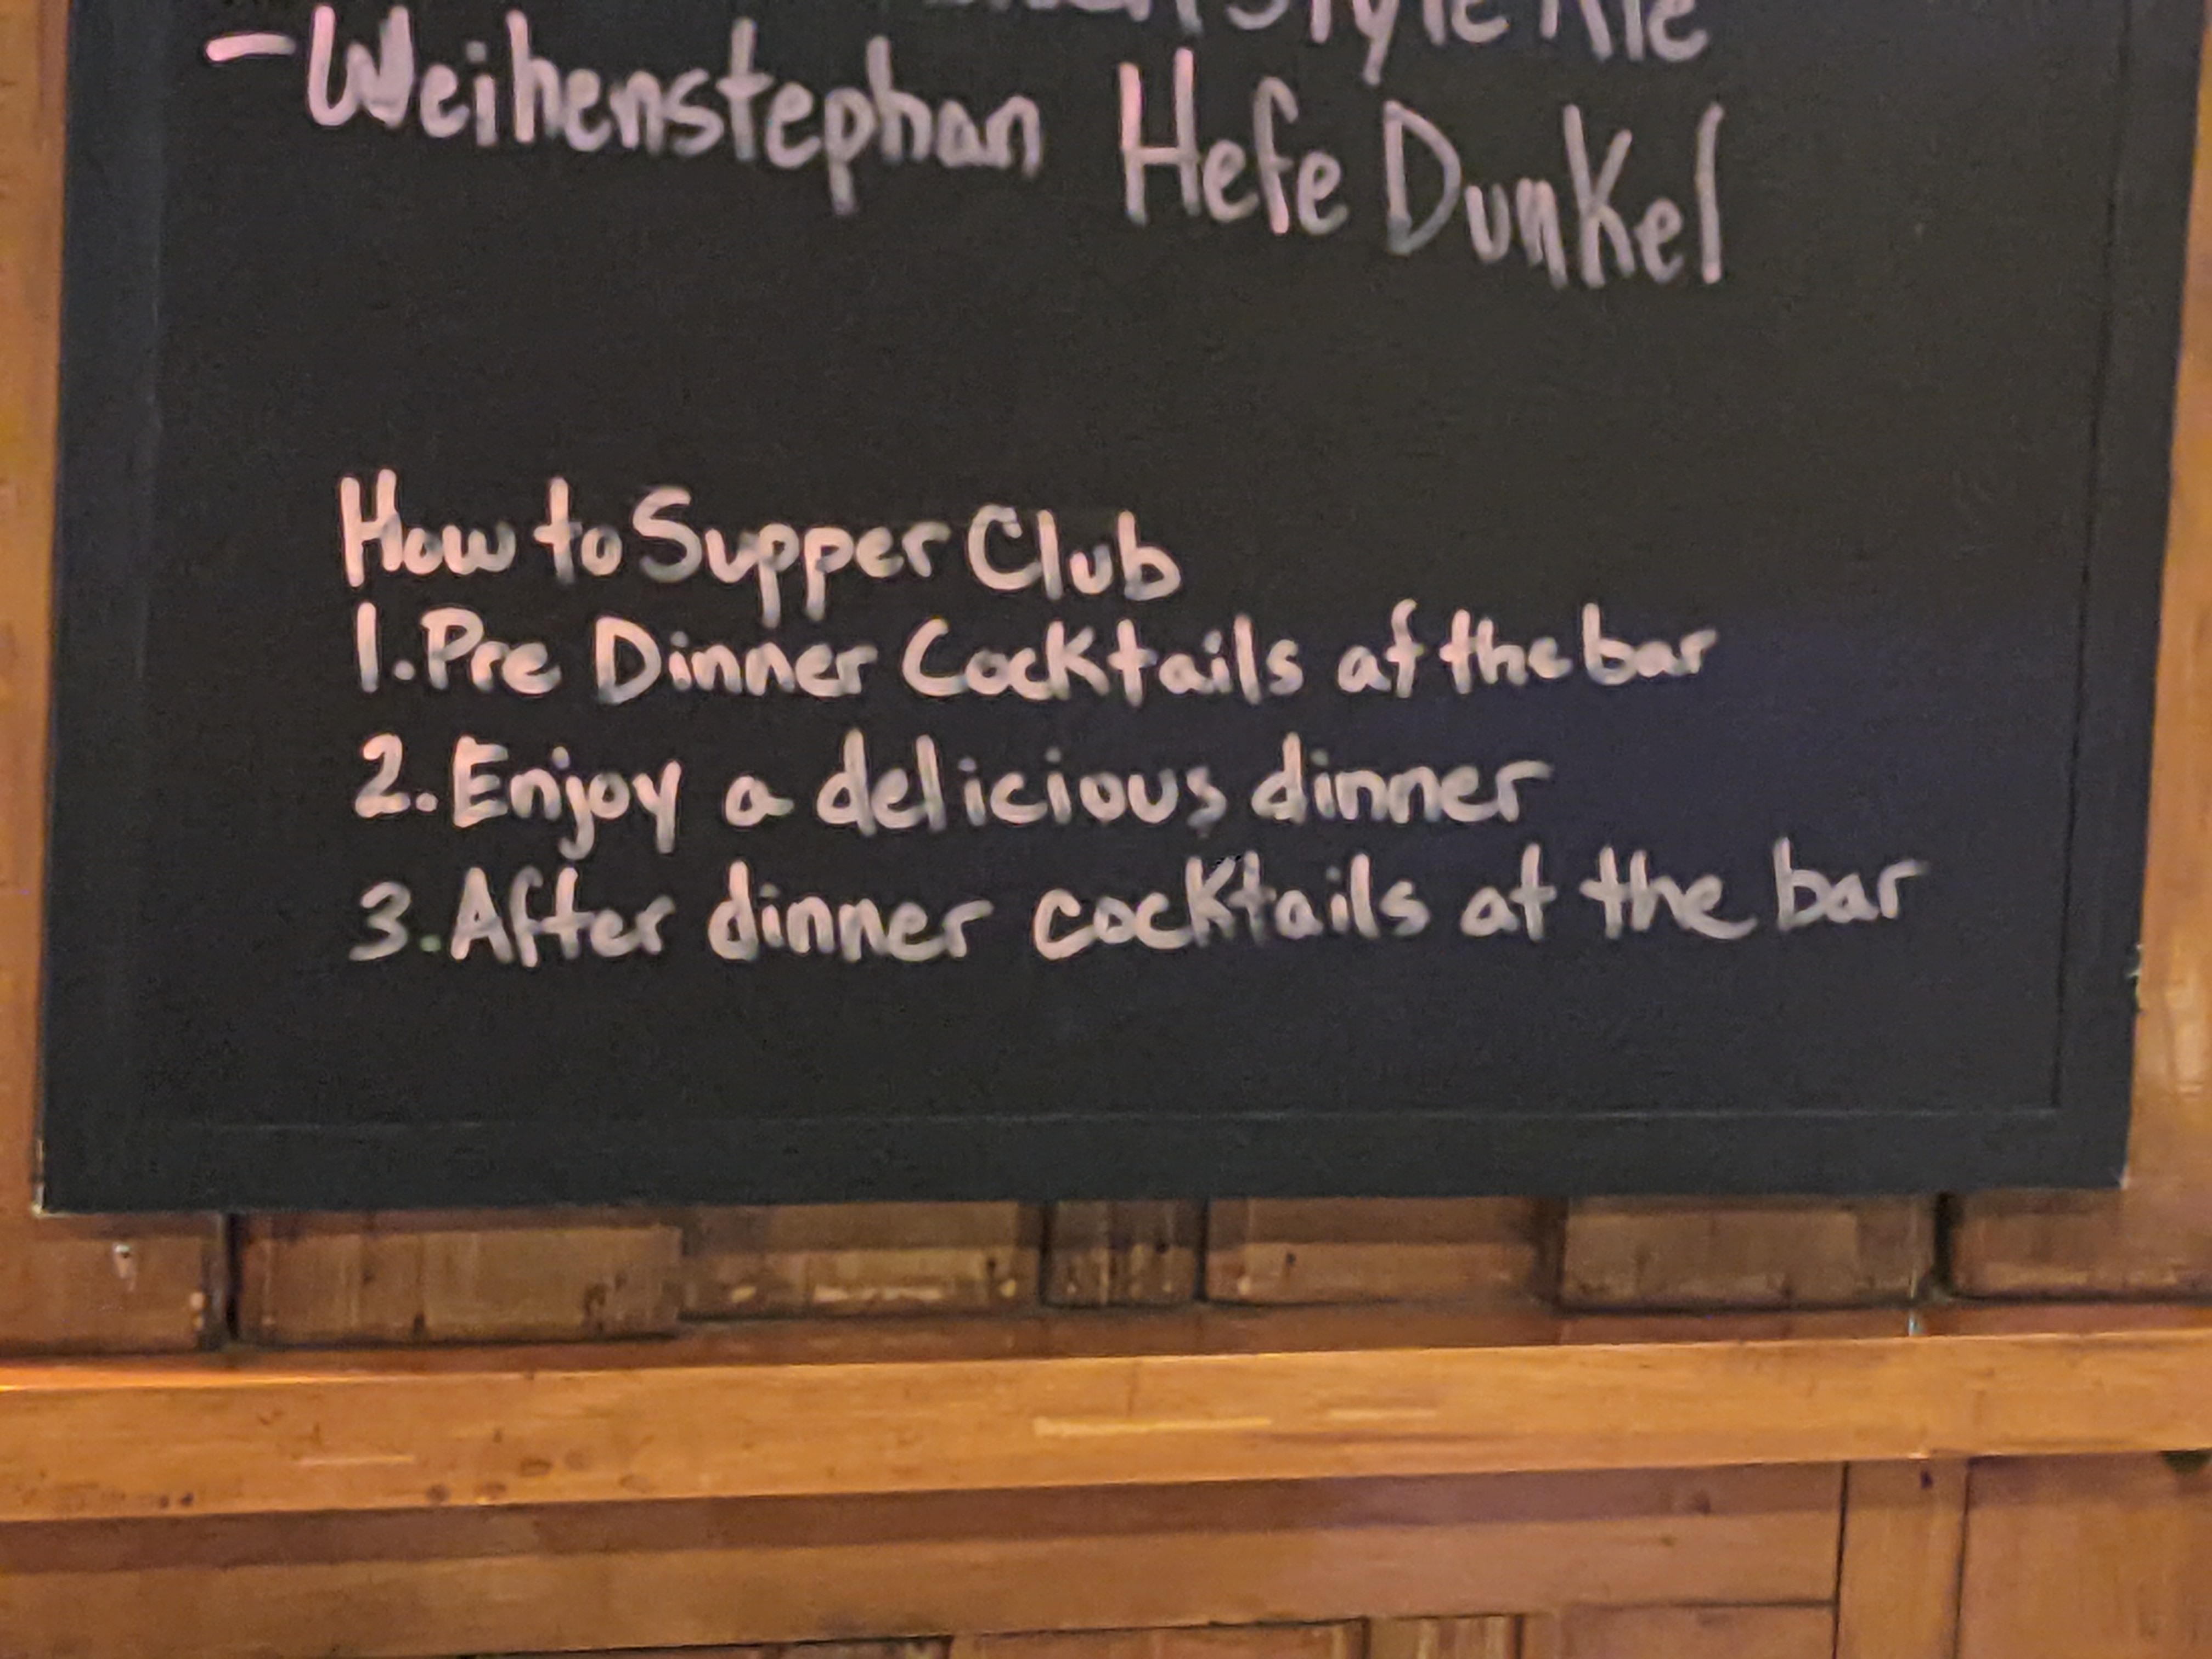 Style Ale
- Weihenstephan Hefe Dunkel
How to Supper Club
1. Pre Dinner Cocktails at the bar
2. Enjoy a delicious dinner
3. After dinner cocktails at the bar